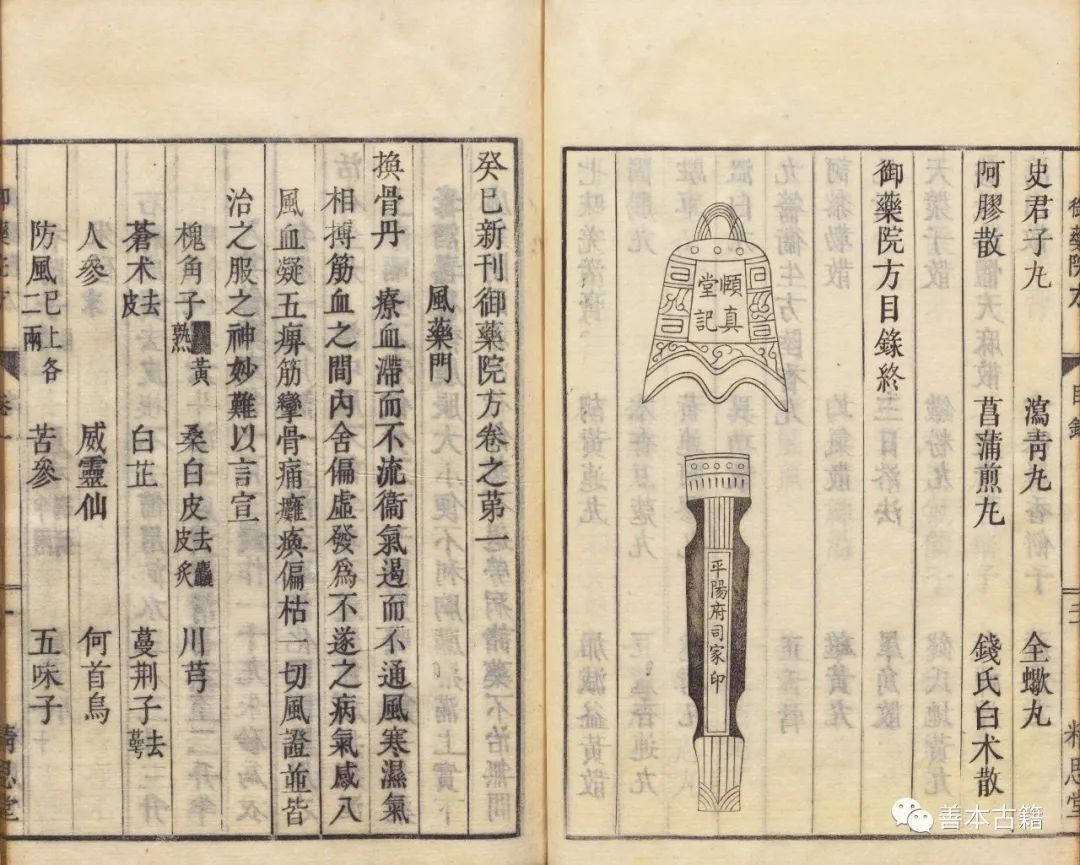 御藥院方　目錄　精思堂
史君子丸　瀉青丸　全蠍丸
阿膠散　菖蒲煎丸　錢氏白朮散
御藥院方目錄終
頤真
堂記
平陽府司家印
癸巳新刊御藥院方卷之苐一
風藥門
換骨丹　療血滯而不流衞氣遏而不通風寒濕氣
相摶筋血之間內舍偏虛發爲不遂之病氣感八
風血凝五痹筋攣骨痛癱瘓偏枯一切風證並皆
治之服之神妙難以言宣
槐角子熟黃　桑白皮去麤皮炙　川芎
蒼朮去皮　白芷　蔓荆子去萼
人參　威靈仙　何首烏
防風已上各二兩　苦參　五味子
善本古籍